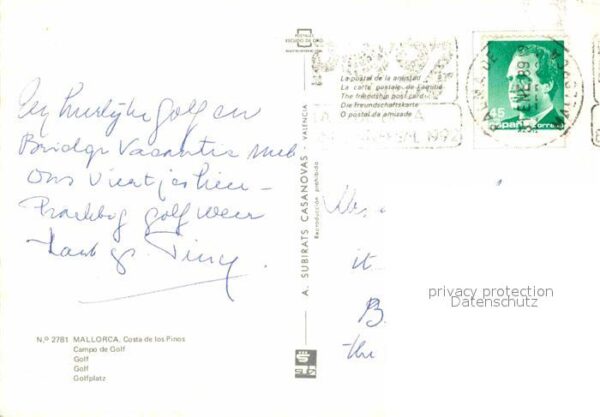 POSTALES
ESCUDO DE ORO
La postal de la amistad
La carte postale de familie
The friendship post card
Die Freundschaftskarte
O postal da amizade
45
españa correos
PALMA DE
ENE 89
1992
heerlijke golf en
Bridge Vacantie met
ons viertjes hier -
Prachtig golf weer
Hart gr.
A. SUBIRATS CASANOVAS VALENCIA
Reproducción prohibida
it
B.
the
privacy protection
Datenschutz
N.º 2781 MALLORCA. Costa de los Pinos
Campo de Golf
Golf
Golf
Golfplatz